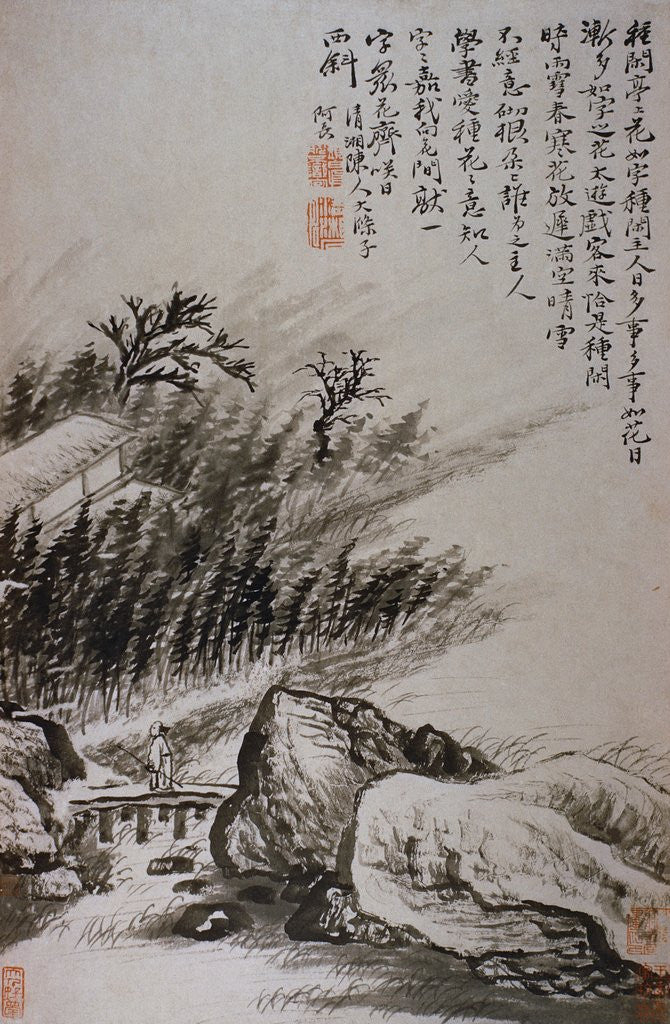 種閑亭上花如字種閑主人日多事多事如花日
漸多如字之花太遊戲客來恰是種閑
時雨雪春寒花放遲滿空晴雪
不經意砌根朵朵誰為之主人
學書愛種花花意知人
字字嘉我向花間獻一
字眾花齊笑日
西斜
清湘陳人大滌子
阿長